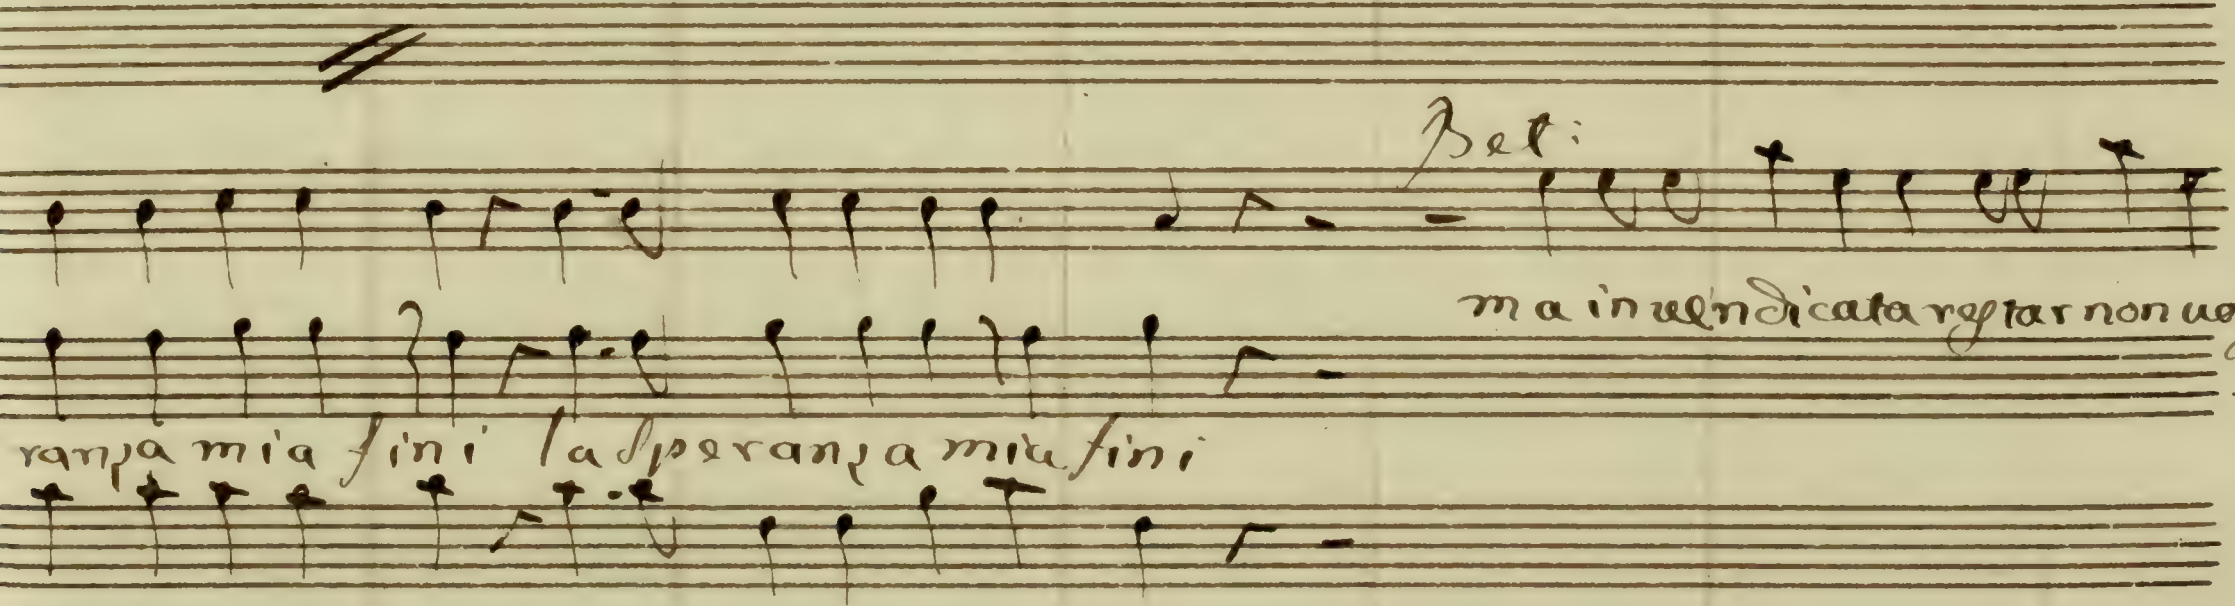 Bet:
ma in uendicata restar non uo
ranza mia fini la speranza mia fini